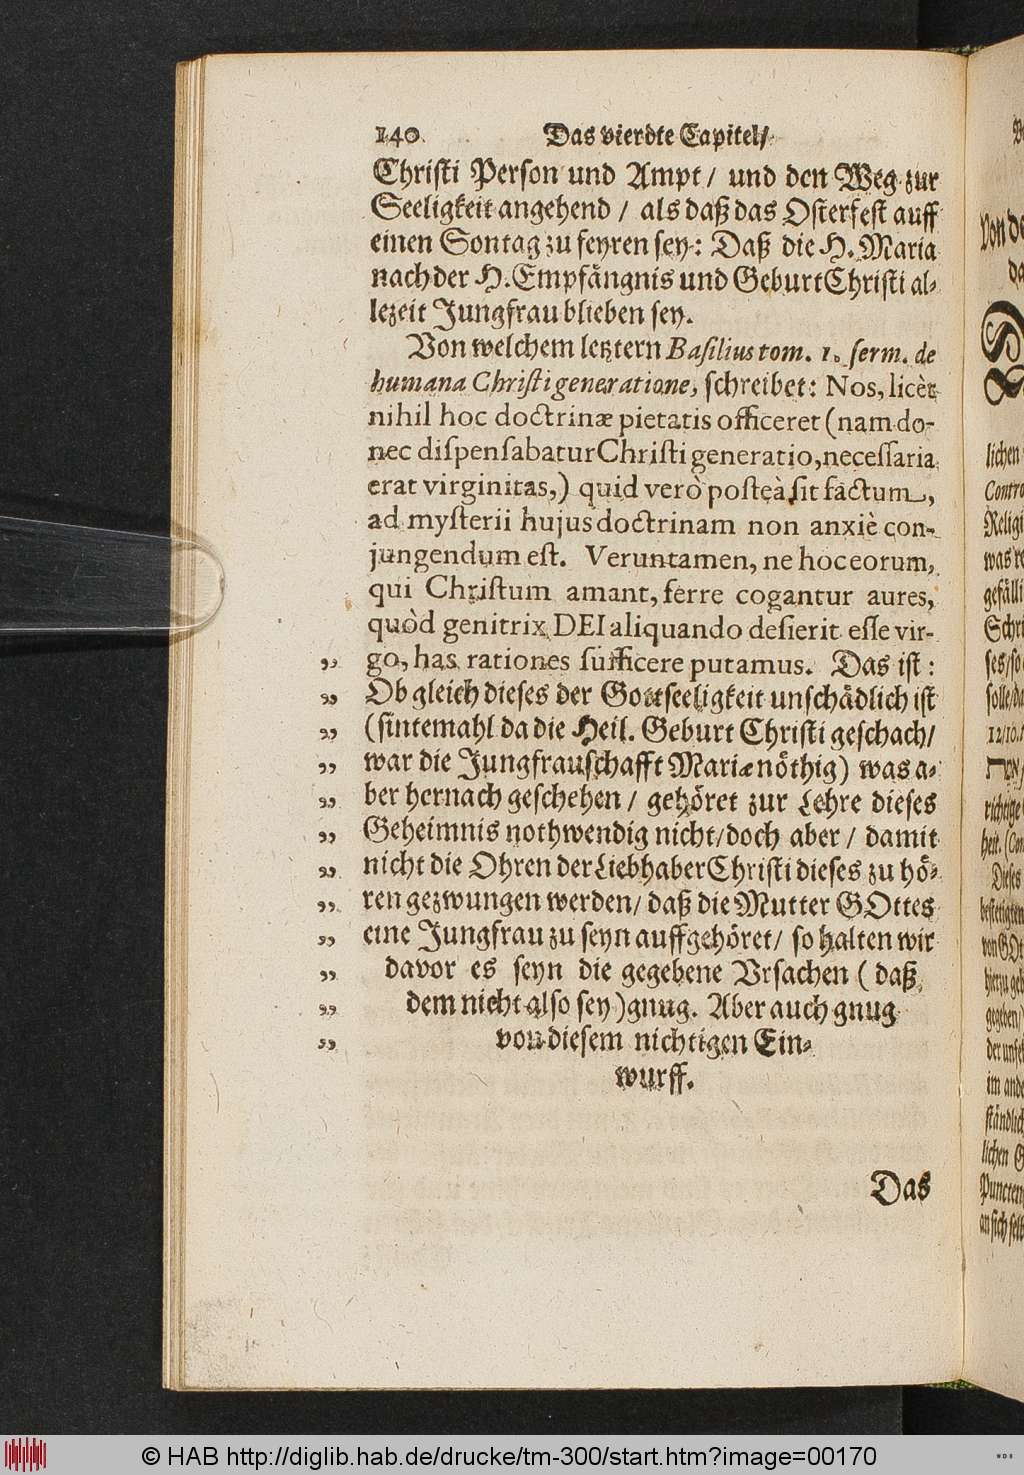 140. Das vierdte Capitel/
Christi Person und Ampt/ und den Weg zur
Seeligkeit angehend / als daß das Osterfest auff
einen Sontag zu feyren sey: Daß die H. Maria
nach der H. Empfängnis und Geburt Christi al-
lezeit Jungfrau blieben sey.
Von welchem letztern Basilius tom. 1. serm. de
humana Christi generatione, schreibet: Nos, licèt
nihil hoc doctrinæ pietatis officeret (nam do-
nec dispensabatur Christi generatio, necessaria
erat virginitas,) quid verò posteà sit factum,
ad mysterii hujus doctrinam non anxiè con-
jungendum est. Veruntamen, ne hoc eorum,
qui Christum amant, ferre cogantur aures,
quòd genitrix DEI aliquando desierit esse vir-
„ go, has rationes sufficere putamus. Das ist:
„ Ob gleich dieses der Gottseeligkeit unschädlich ist
„ (sintemahl da die Heil. Geburt Christi geschach/
„ war die Jungfrauschafft Mariæ nöthig) was a-
„ ber hernach geschehen / gehöret zur Lehre dieses
„ Geheimnis nothwendig nicht/ doch aber / damit
„ nicht die Ohren der Liebhaber Christi dieses zu hö-
„ ren gezwungen werden/ daß die Mutter GOttes
„ eine Jungfrau zu seyn auffgehöret/ so halten wir
„ davor es seyn die gegebene Vrsachen ( daß
„ dem nicht also sey ) gnug. Aber auch gnug
„ von diesem nichtigen Ein-
wurff.
Das
© HAB http://diglib.hab.de/drucke/tm-300/start.htm?image=00170